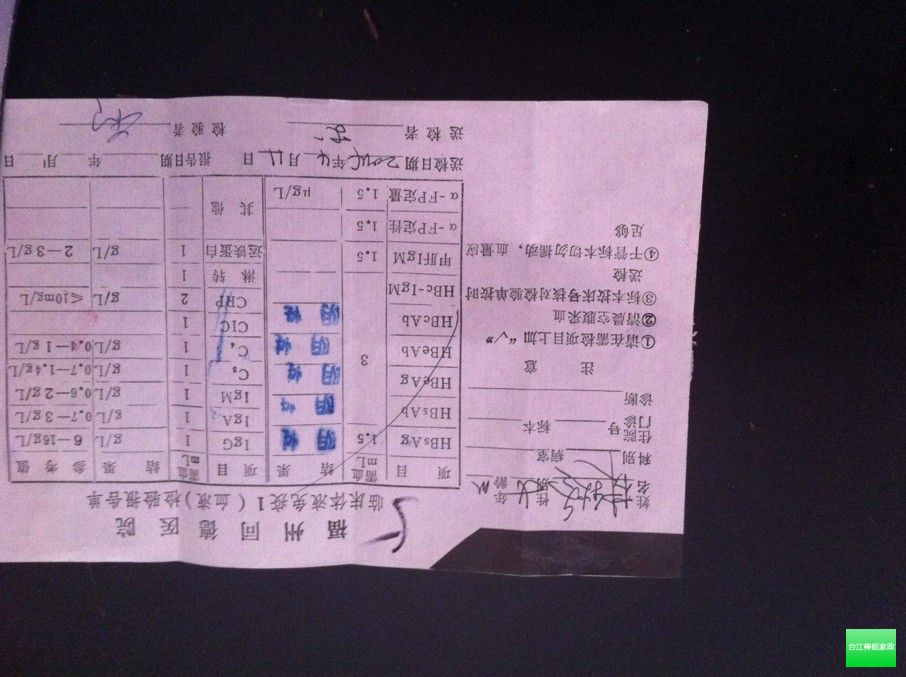 福州同德医院
临床体液免疫1（血液）检验报告单
姓名 性 年龄
科别 病室
住院
门诊 号 标本
诊断
注意
①请在需检项目上加“√”
②清晨空腹采血
③标本按床号核对检验单按时
送检
④干管标本切勿摇动，血量应
足够
项目 需血mL 结果 项目 需血mL 结果 参考值
HBsAg 1.5 阴性 IgG 1 g/L 6—16g/L
HBsAb 3 阴性 IgA 1 g/L 0.7—3g/L
HBeAg 阴性 IgM 1 g/L 0.6—2g/L
HBeAb 阴性 C₃ 1 g/L 0.7—1.4g/L
HBcAb 阴性 C₄ 1 g/L 0.4—1g/L
HBc-IgM CIC 1
甲肝IgM 1.5 CRP 2 g/L ≤10mg/L
α-FP定性 1.5 淋转 1
α-FP定量 1.5 μg/L 运铁蛋白 1 g/L 2—3g/L
其他
送检日期 年 月 日 报告日期 年 月 日
送检者 检验者
台江棒姐家政